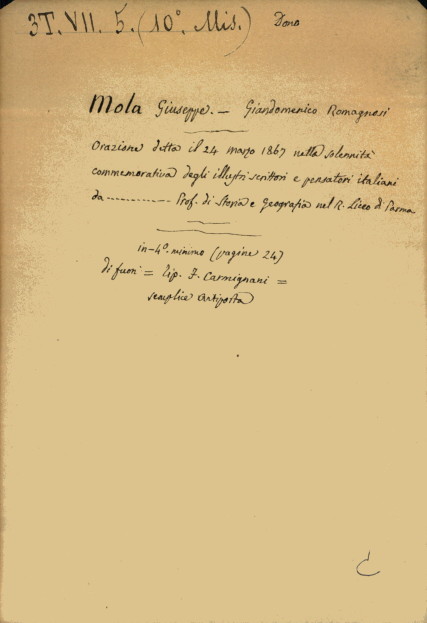 3T. VII. 5. (10°. Mis.) Dono
Mola Giuseppe. — Giandomenico Romagnosi
Orazione detta il 24 marzo 1867 nella solennità
commemorativa degli illustri scrittori e pensatori italiani
da ------------ Prof. di Storia e Geografia nel R. Liceo di Parma
in-4° minimo (pagine 24)
di fuori = Tip. F. Carmignani =
semplice antiposta